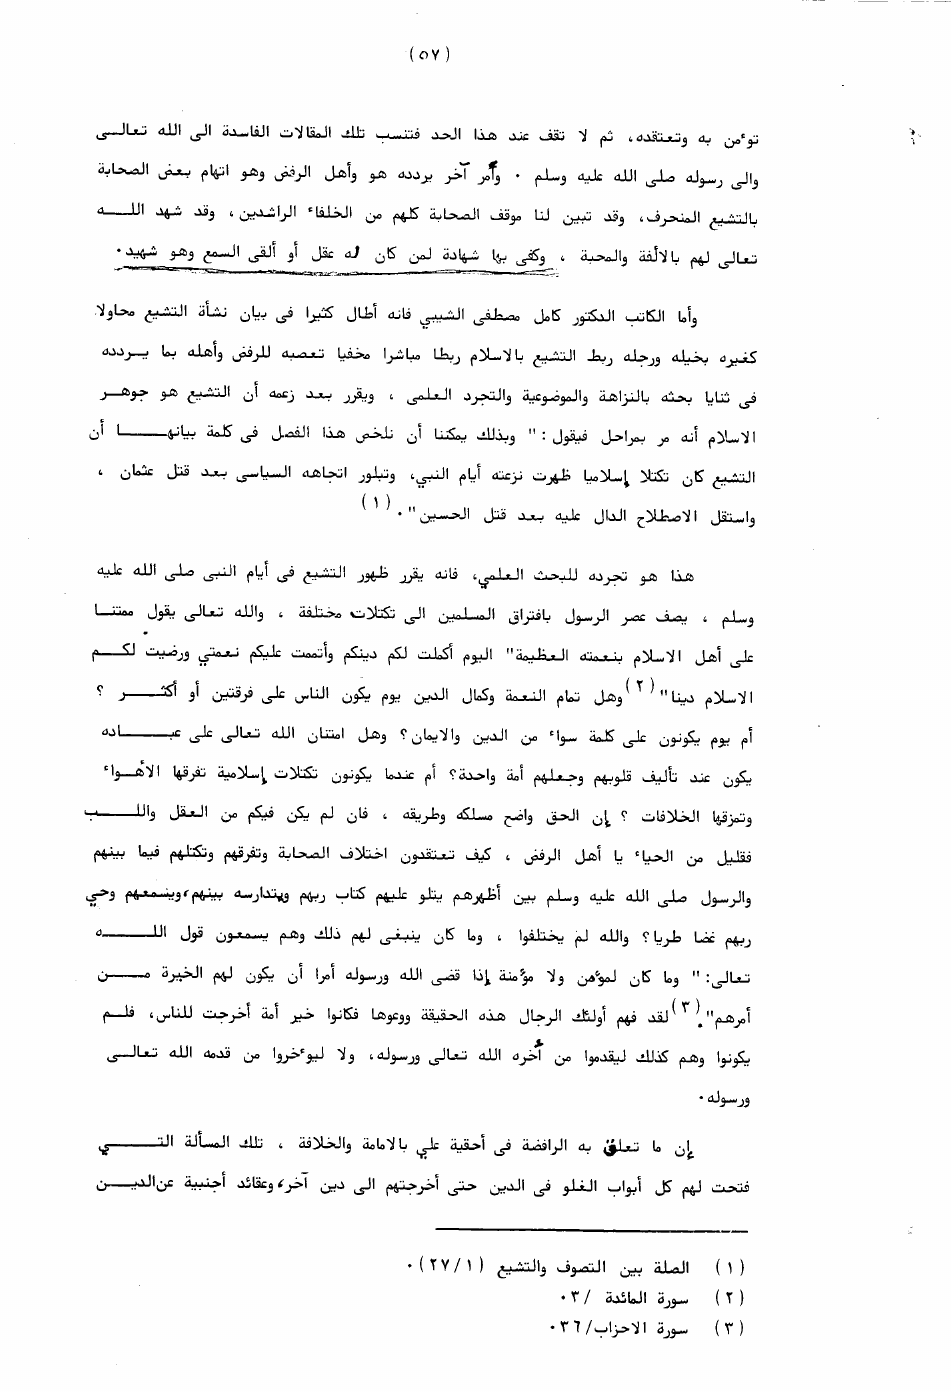 (٥٧)
توءمن به وتعتقده، ثم لا تقف عند هذا الحد فتنسب تلك المقالات الفاسدة الى الله تعالى
والى رسوله صلى الله عليه وسلم ٠ وأمر آخر يردده هو وأهل الرفض وهو اتهام بعض الصحابة
بالتشيع المنحرف، وقد تبين لنا موقف الصحابة كلهم من الخلفاء الراشدين، وقد شهد الله
تعالى لهم بالألفة والمحبة ، وكفى بها شهادة لمن كان له عقل أو ألقى السمع وهو شهيد٠
وأما الكاتب الدكتور كامل مصطفى الشيبي فانه أطال كثيرا فى بيان نشأة التشيع محاولا
كغيره بخيله ورجله ربط التشيع بالاسلام ربطا مباشرا مخفيا تعصبه للرفض وأهله بما يردده
فى ثنايا بحثه بالنزاهة والموضوعية والتجرد العلمى ، ويقرر بعد زعمه أن التشيع هو جوهر
الاسلام أنه مر بمراحل فيقول :" وبذلك يمكننا أن نلخص هذا الفصل فى كلمة بيانها أن
التشيع كان تكتلا إسلاميا ظهرت نزعته أيام النبي، وتبلور اتجاهه السياسى بعد قتل عثمان ،
واستقل الاصطلاح الدال عليه بعد قتل الحسين"٠(١)
هذا هو تجرده للبحث العلمي، فانه يقرر ظهور التشيع فى أيام النبى صلى الله عليه
وسلم ، يصف عصر الرسول بافتراق المسلمين الى تكتلات مختلفة ، والله تعالى يقول ممتنا
على أهل الاسلام بنعمته العظيمة" اليوم أكملت لكم دينكم وأتممت عليكم نعمتي ورضيت لكم
الاسلام دينا"(٢) وهل تمام النعمة وكمال الدين يوم يكون الناس على فرقتين أو أكثر ؟
أم يوم يكونون على كلمة سواء من الدين والايمان؟ وهل امتنان الله تعالى على عباده
يكون عند تأليف قلوبهم وجعلهم أمة واحدة؟ أم عندما يكونون تكتلات إسلامية تفرقها الأهواء
وتمزقها الخلافات ؟ إن الحق واضح مسلكه وطريقه ، فان لم يكن فيكم من العقل واللب
فقليل من الحياء يا أهل الرفض ، كيف تعتقدون اختلاف الصحابة وتفرقهم وتكتلهم فيما بينهم
والرسول صلى الله عليه وسلم بين أظهرهم يتلو عليهم كتاب ربهم ويتدارسه بينهم، ويسمعهم وحي
ربهم غضا طريا؟ والله لم يختلفوا ، وما كان ينبغى لهم ذلك وهم يسمعون قول الله
تعالى:" وما كان لمؤمن ولا مؤمنة إذا قضى الله ورسوله أمرا أن يكون لهم الخيرة من
أمرهم"٠(٣) لقد فهم أولئك الرجال هذه الحقيقة ووعوها فكانوا خير أمة أخرجت للناس، فلم
يكونوا وهم كذلك ليقدموا من أخره الله تعالى ورسوله، ولا ليوءخروا من قدمه الله تعالى
ورسوله٠
إن ما تعلق به الرافضة فى أحقية علي بالامامة والخلافة ، تلك المسألة التي
فتحت لهم كل أبواب الغلو فى الدين حتى أخرجتهم الى دين آخر، وعقائد أجنبية عن الدين
(١) الصلة بين التصوف والتشيع (٢٧/١)٠
(٢) سورة المائدة /٣٠
(٣) سورة الاحزاب/٣٦٠